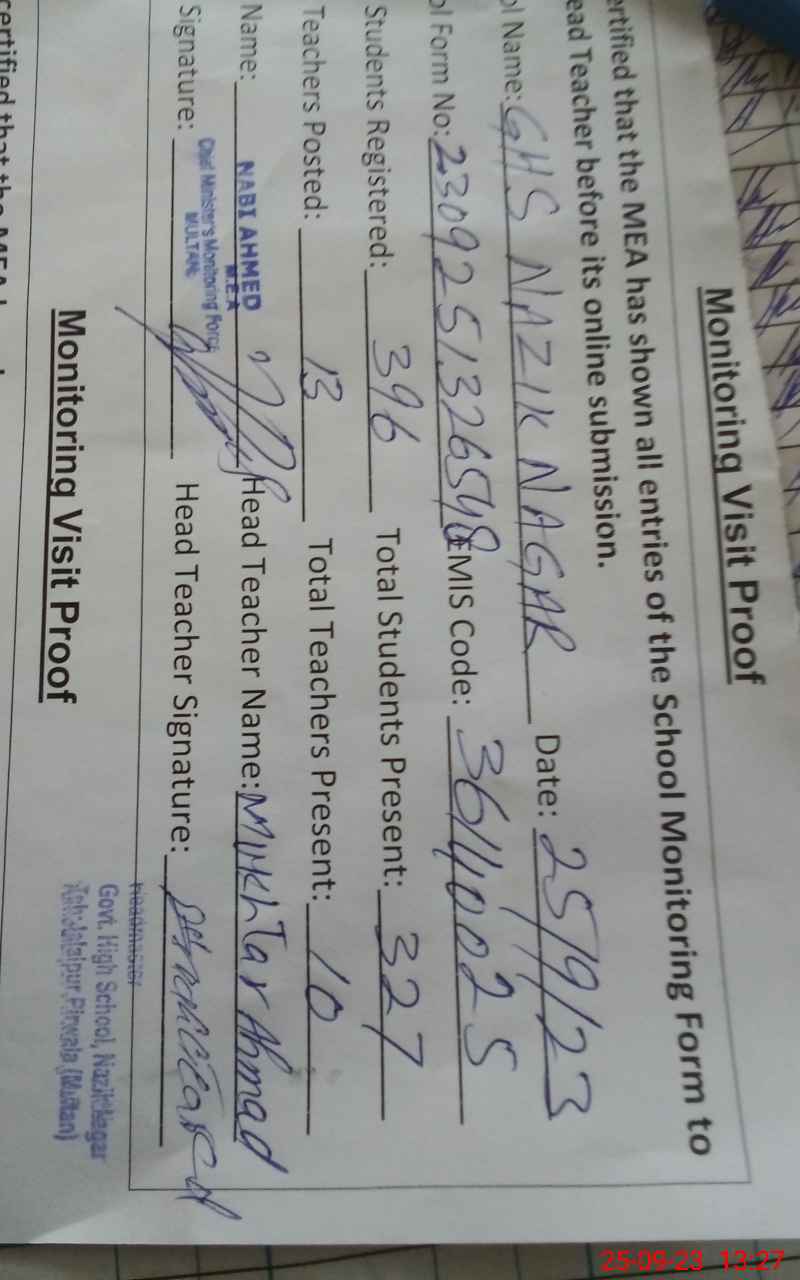 Monitoring Visit Proof
ertified that the MEA has shown all entries of the School Monitoring Form to
ead Teacher before its online submission.
ol Name: GHS NAZIK NAGAR Date: 25/9/23
ol Form No: 2309251326548 EMIS Code: 36140025
Students Registered: 396 Total Students Present: 327
Teachers Posted: 13 Total Teachers Present: 10
Name: NABI AHMED Head Teacher Name: Mukhtar Ahmad
M.E.A
Chief Minister's Monitoring Force
MULTAN.
Signature: Head Teacher Signature:
Headmaster
Govt. High School, Nazik Nagar
Teh: Jalalpur Pirwala (Multan)
Monitoring Visit Proof
certified that the MEA h
25-09-23 13:27